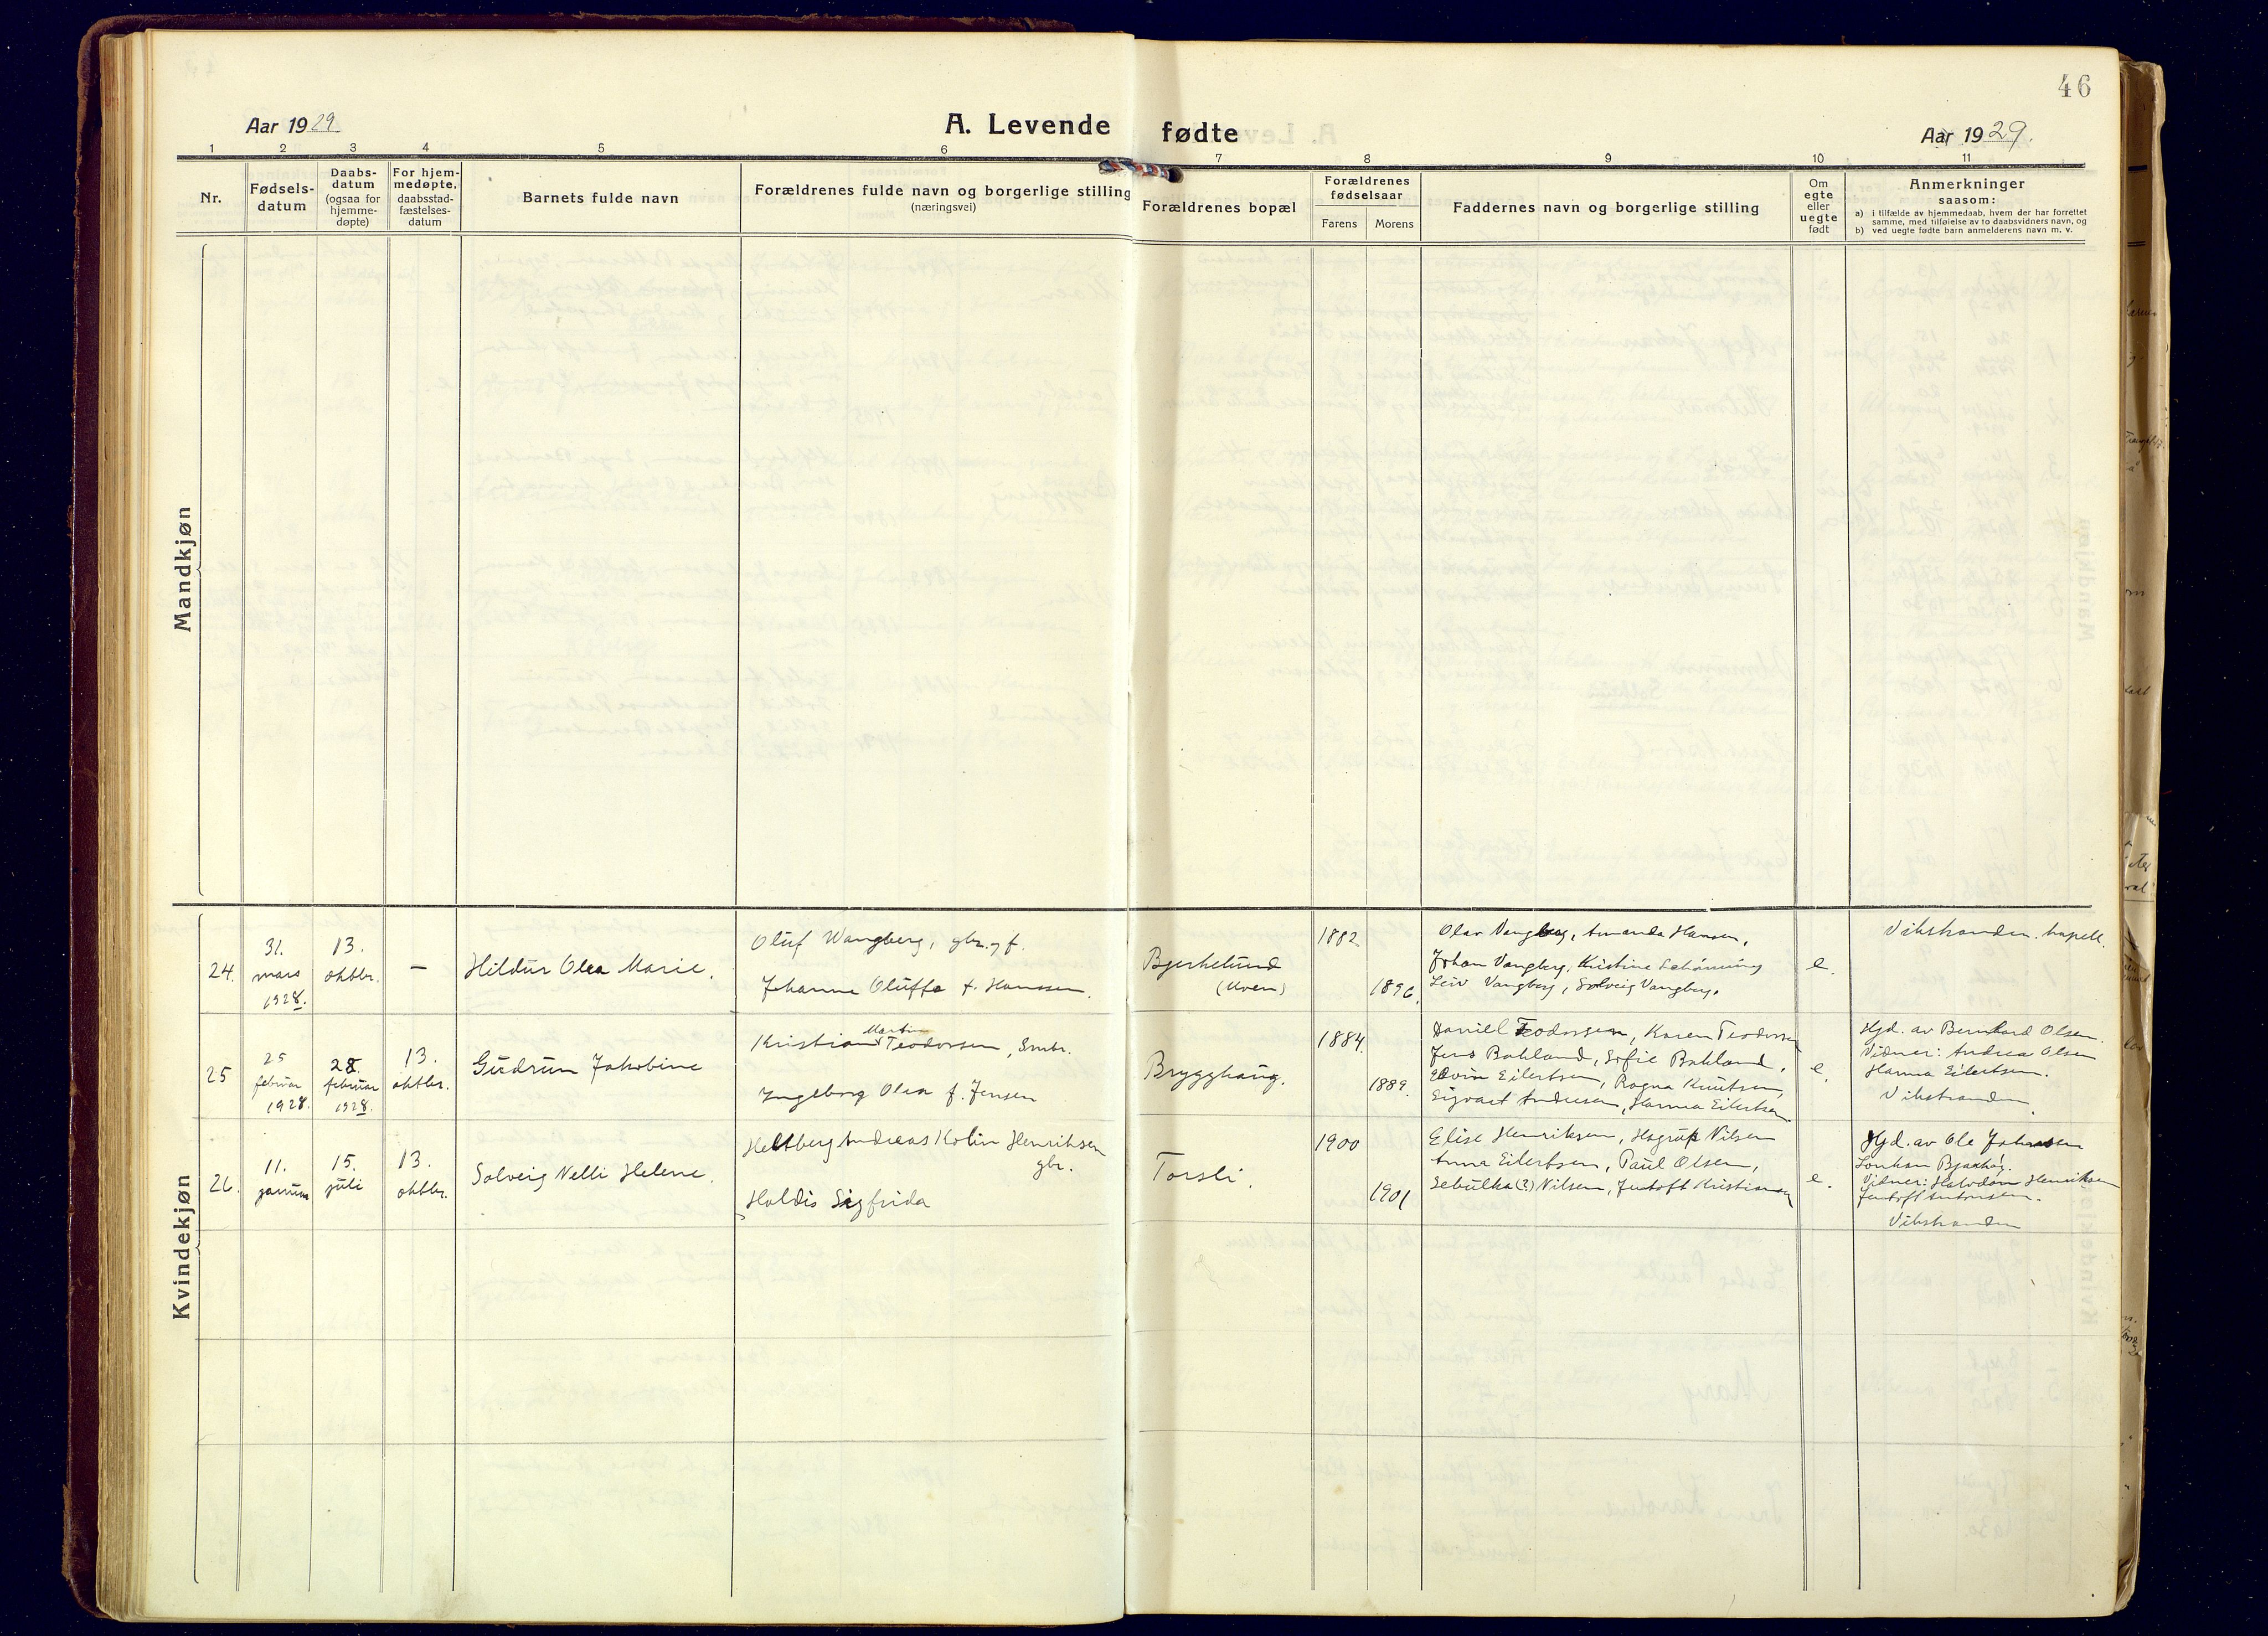 46
Aar 1929
A. Levende fødte
Aar 1929.
1 2 3 4 5 6 7 8 9 10 11
Nr.
Fødsels-
datum
Daabs-
datum
(ogsaa for
hjemme-
døpte)
For hjem-
medøpte,
daabsstad-
fæstelses-
datum
Barnets fulde navn
Forældrenes fulde navn og borgerlige stilling
(næringsvei)
Forældrenes bopæl
Forældrenes
fødselsaar
Farens Morens
Faddernes navn og borgerlige stilling
Om
egte
eller
uegte
født
Anmerkninger
saasom:
a) i tilfælde av hjemmedaab, hvem der har forrettet
samme, med tilføielse av to daabsvidners navn, og
b) ved uegte fødte barn anmelderens navn m. v.
Mandkjøn
Kvindekjøn
24.
31.
mars
1928.
13.
oktbr.
—
Hildur Olea Marie.
Oluf Wangberg, gbr. og f.
Johanne Oluffa f. Hanssen.
Bjerkelund
(Moen)
1882
1896.
Olav Vangberg, Amanda Hansen,
Johan Vangberg, Kristine Schönning
Leiv Vangberg, Solveig Vangberg.
e.
Vikstranden kapell.
25
25
februar
1928.
28.
februar
1928.
13.
oktbr.
Gudrun Jakobine
Martin
Kristian Teodorsen, Smbr.
Ingeborg Olea f. Jensen
Brygghaug.
1884.
1889.
Daniel Teodorsen, Karen Teodorsen
Jens Bakland, Sofie Bakland,
Edvin Eilertsen, Ragna Knutsen,
Sigvart Andresen, Hanna Eilertsen
e.
Hjd. av Bernhard Olsen.
Vidner: Andrea Olsen
Hanna Eilertsen.
Vikstranden.
26.
11.
januar
15.
juli
13.
oktbr.
Solveig Nelli Helene.
Heltberg Andreas Kolin Henriksen
gbr.
Haldis Sigfrida
Torsli.
1900
1901
Elise Henriksen, Hagrup Nilsen
Anna Eilertsen, Paul Olsen,
(?) Nilsen, Jentoft Kristiansen
e.
Hjd. av Ole Johansen
Vidner: Halvdan Henriksen
Jentoft Antonsen.
Vikstranden